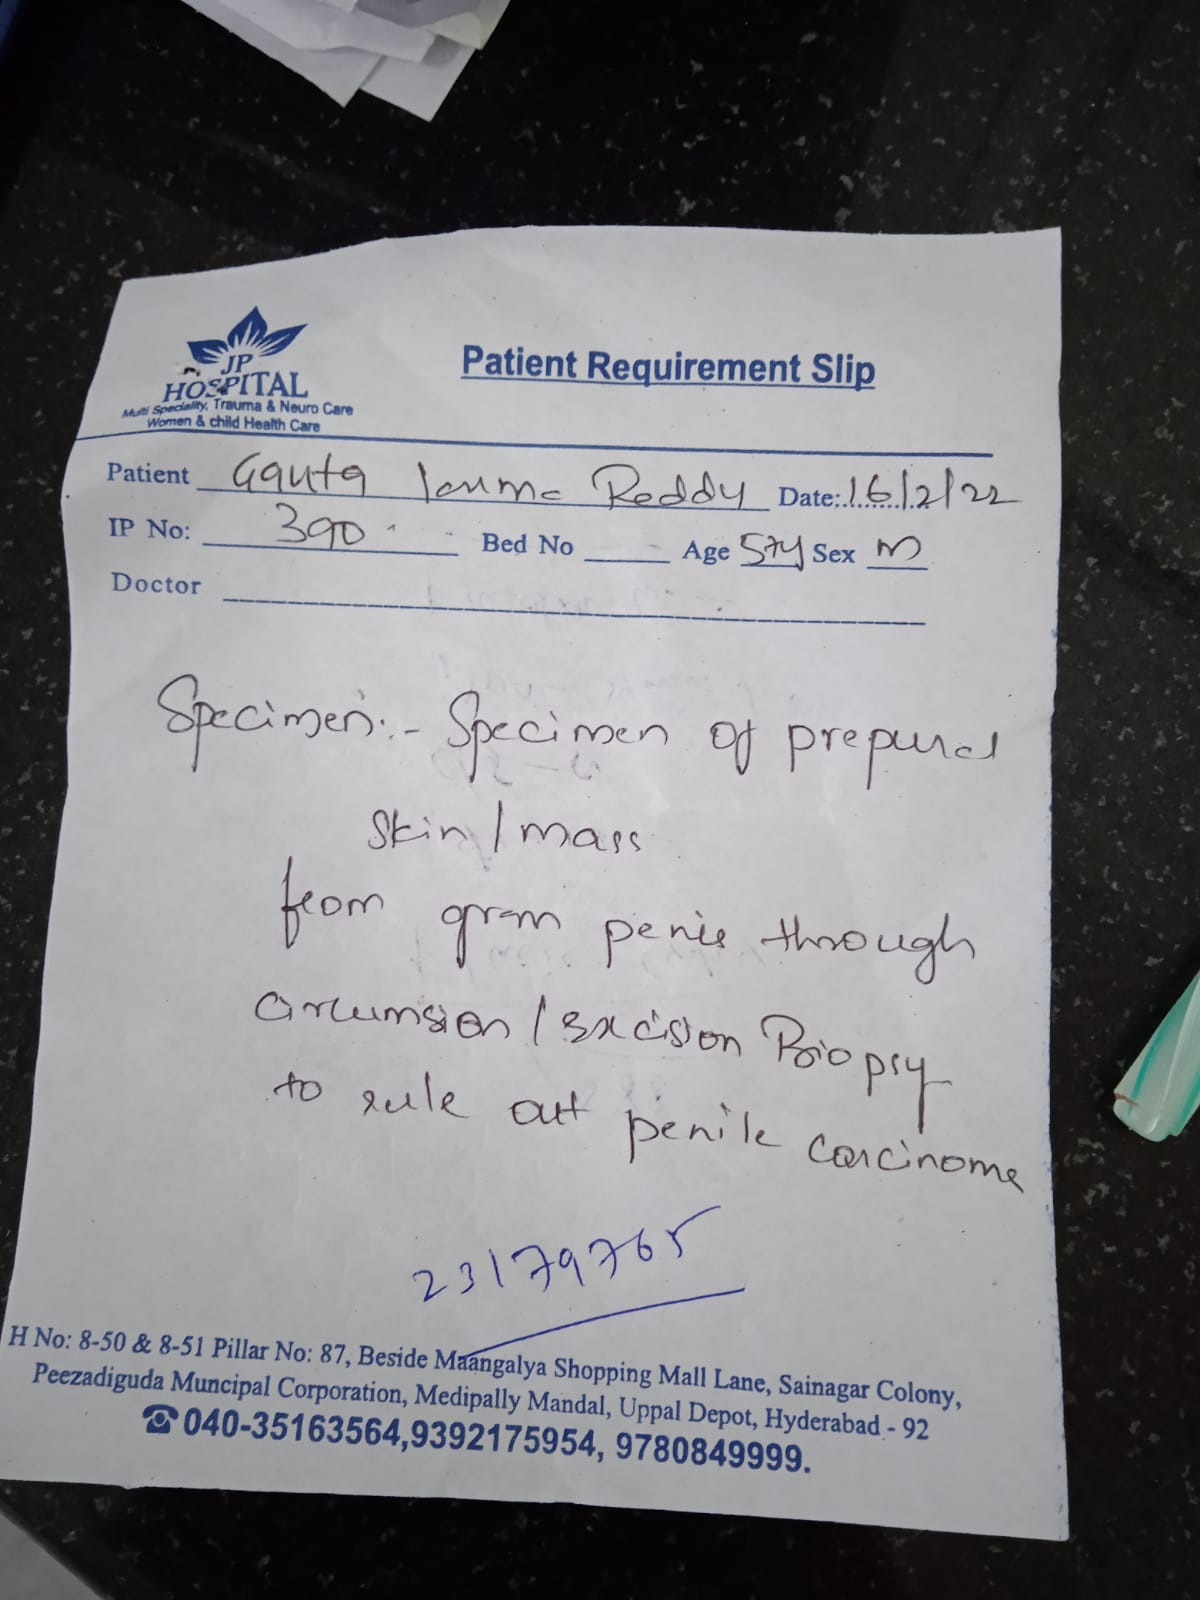 JP
HOSPITAL
Multi Speciality, Trauma & Neuro Care
Women & child Health Care
Patient Requirement Slip
Patient Gauta Reddy Date: 16/2/22
IP No: 390 Bed No - Age 57y Sex M
Doctor
Specimen:- Specimen of prepucal
skin / mass
from penis through
circumsion / Excision Biopsy
to rule out penile carcinoma
23179765
H No: 8-50 & 8-51 Pillar No: 87, Beside Maangalya Shopping Mall Lane, Sainagar Colony,
Peezadiguda Muncipal Corporation, Medipally Mandal, Uppal Depot, Hyderabad - 92
☎040-35163564,9392175954, 9780849999.